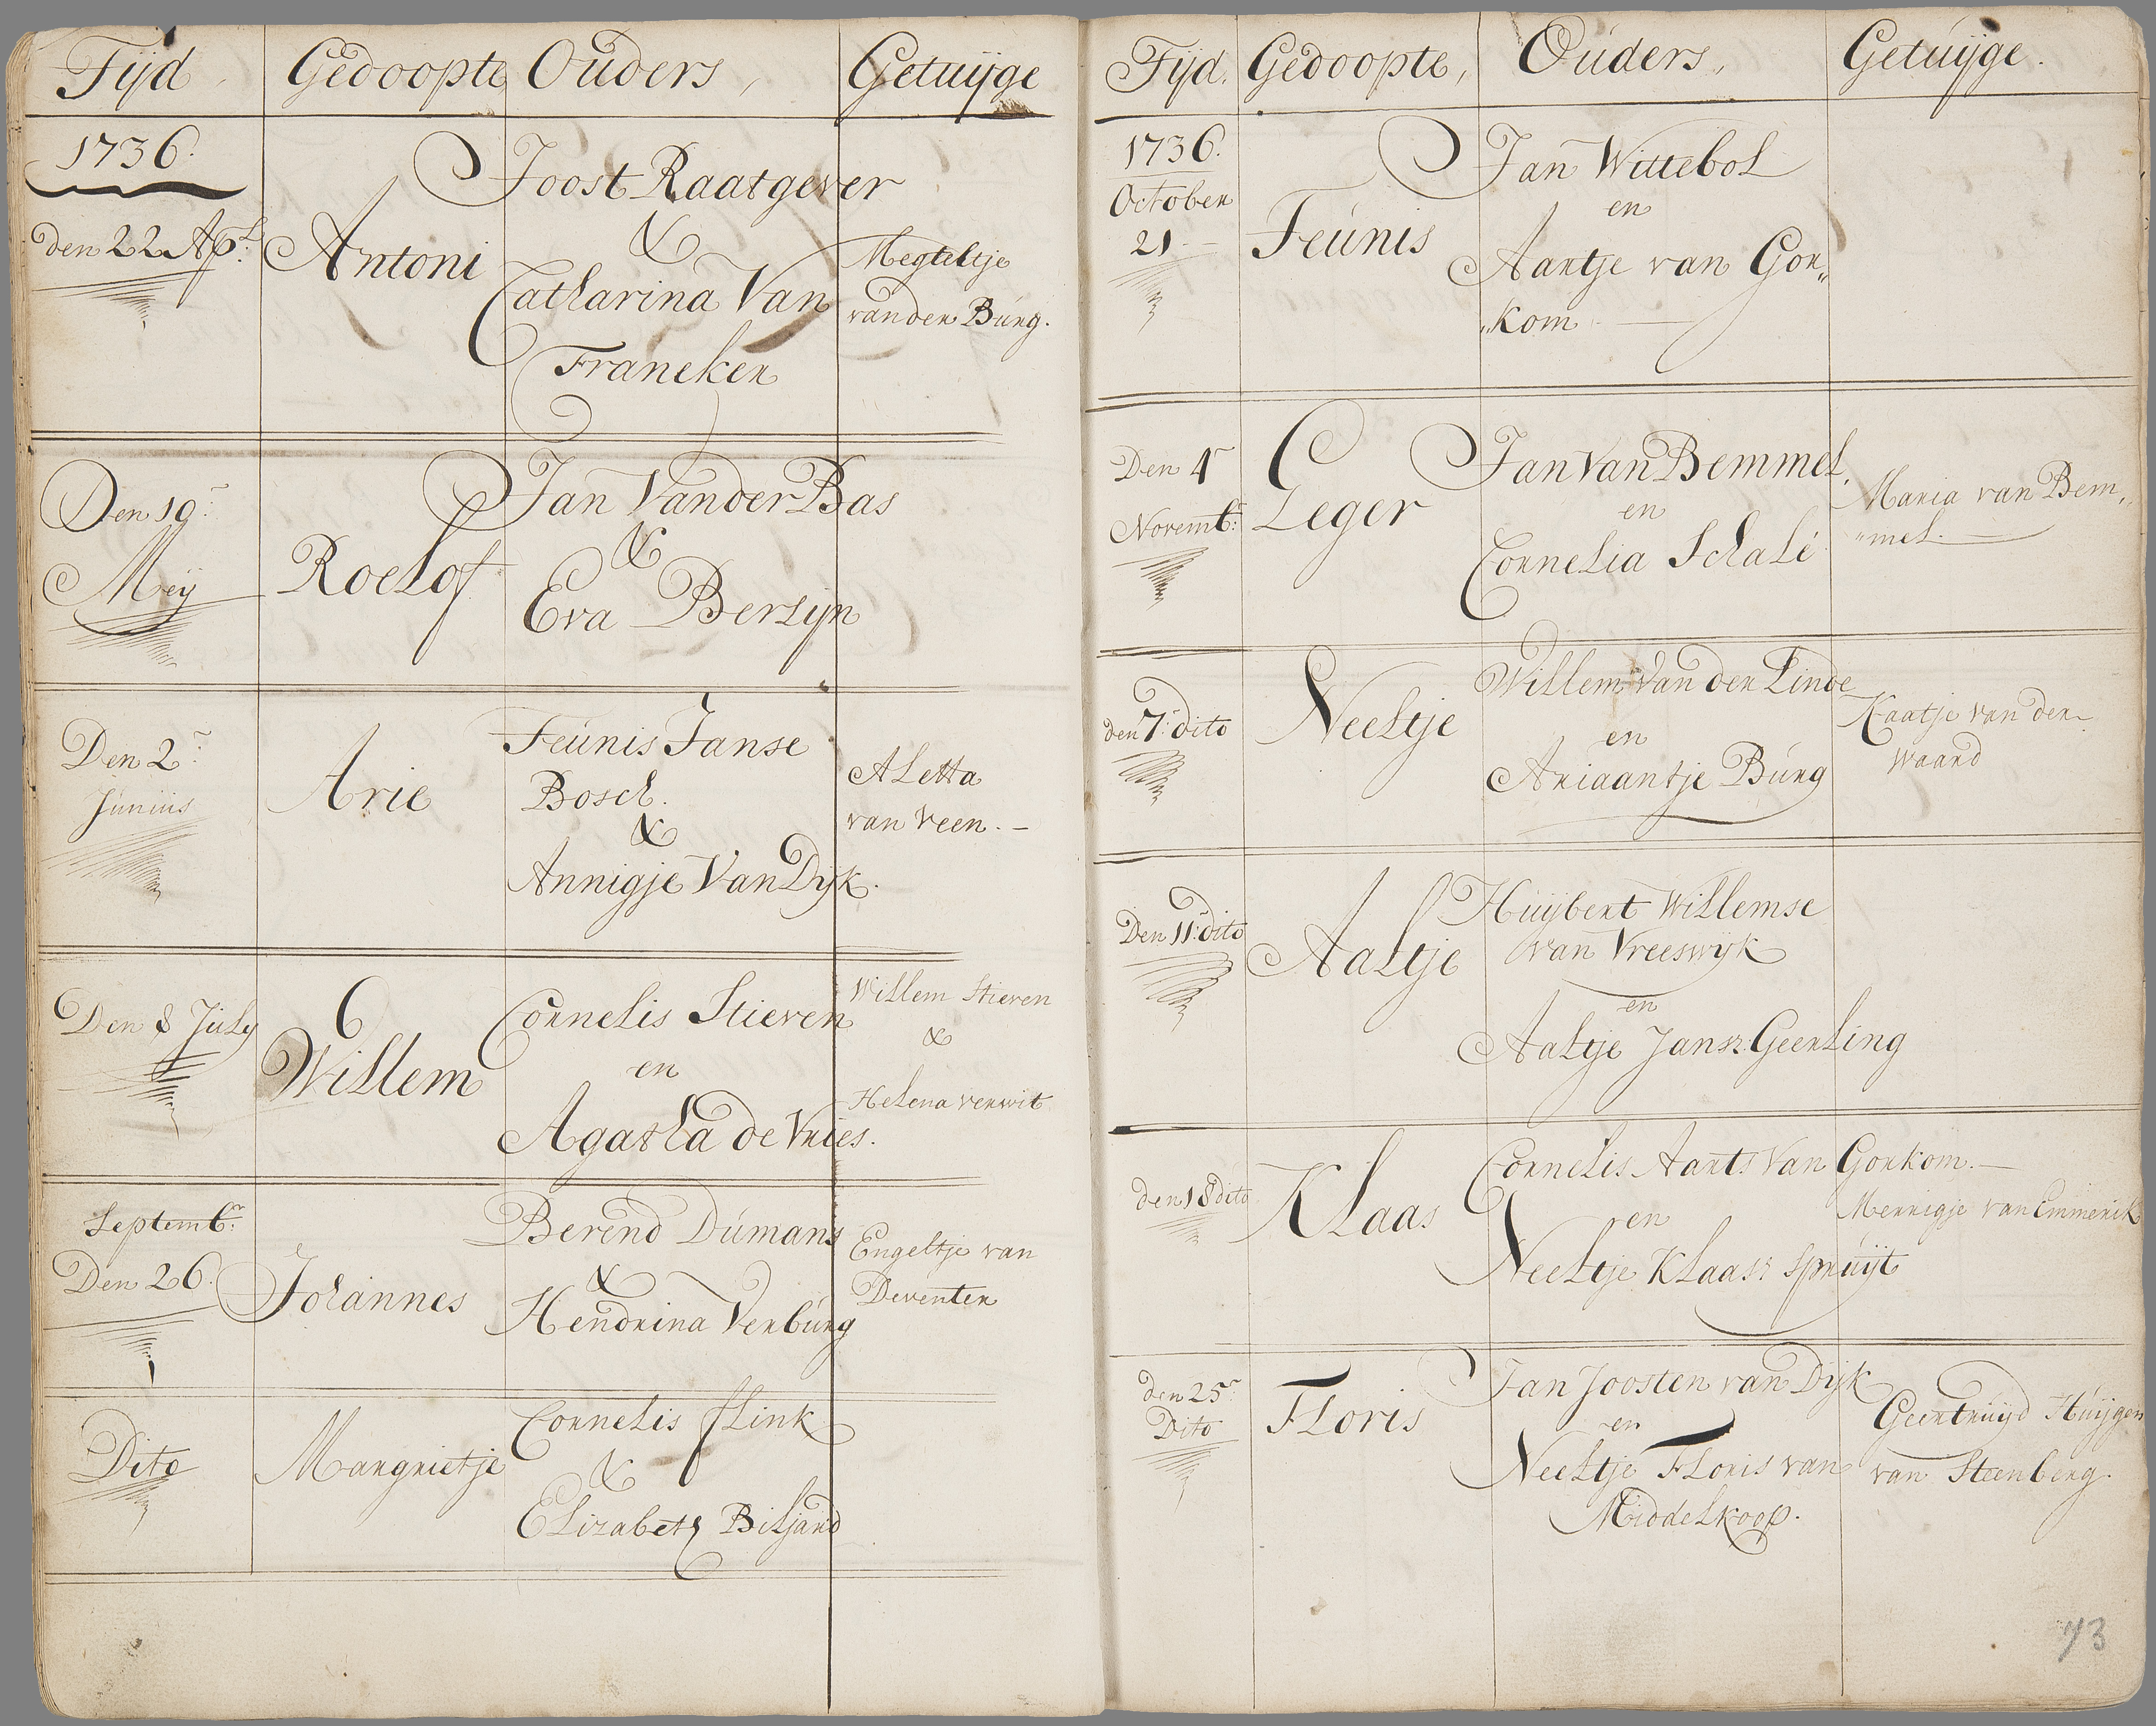 Tijd
Gedoopte
Ouders,
Getuijge
1736.
den 22 Apl:
Antoni
Joost Raatgever
&
Catharina Van
Franeken
Megteltje
van den Burg.
Den 19:
Meij
Roelof
Jan Van der Bas
&
Eva Bersijn
Den 2:
Junius
Arie
Teunis Janse
Bosch.
&
Annigje Van Dijk.
Aletta
van Veen.
Den 8 July
Willem
Cornelis Stieven
en
Agatha de Vries.
Willem Stieven
&
Helena verwit
Septembr:
Den 26.
Johannes
Berend Dumans
&
Hendrina Verburg
Engeltje van
Deventer
Dito
Margrietje
Cornelis flink
&
Elizabeth Biljard
Tijd.
Gedoopte,
Ouders,
Getuijge.
1736.
October
21
Teunis
Jan Wittebol
en
Aartje van Gor„
„kom
Den 4
Novembr:
Leger
Jan Van Bemmel,
en
Cornelia Schalé
Maria van Bem„
„mel.
den 7: dito
Neeltje
Willem Van der Linde
en
Ariaantje Burg
Kaatje van der
Waard
Den 11: dito
Aaltje
Huijbert Willemse
van Vreeswijk
en
Aaltje Jansz: Geerling
den 18 dito
Klaas
Cornelis Aarts Van Gorkom.
en
Neeltje Klaasz Spruijt
Merrigje van Emmerik
den 25:
Dito
Floris
Jan Joosten van Dijk
en
Neeltje Floris van
Middelkoop.
Geertruijd Huijgen
van Steenberg.
73